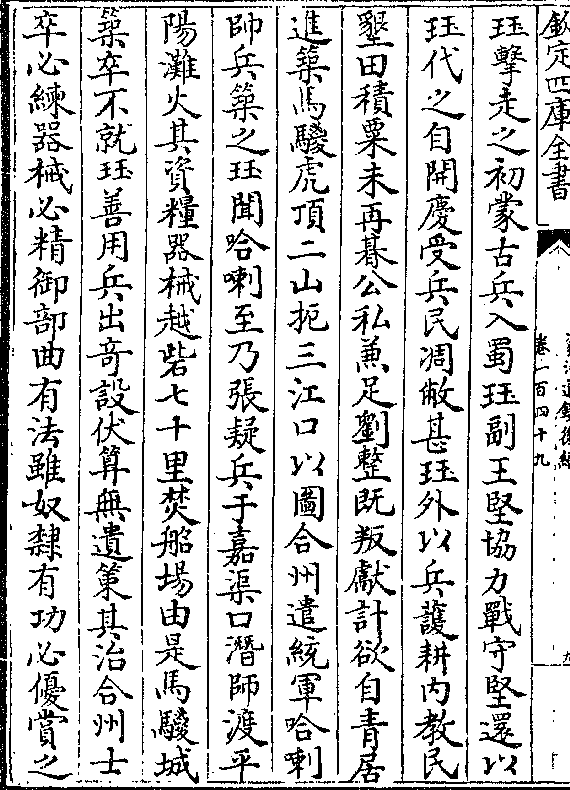 欽定四庫全書
資治通鑑後編
卷一百四十九
九
珏擊走之初蒙古兵入蜀珏副王堅協力戰守堅還以
珏代之自開慶受兵民凋敝甚珏外以兵護耕内教民
墾田積粟未再朞公私兼足劉整既叛獻計欲自青居
進築馬騣虎頂二山扼三江口以圖合州遣統軍哈喇
帥兵築之珏聞哈喇至乃張疑兵于嘉渠口潛師渡平
陽灘火其資糧器械越砦七十里焚船場由是馬騣城
築卒不就珏善用兵出竒設伏算無遺策其治合州士
卒必練器械必精御部曲有法雖奴隸有功必優賞之